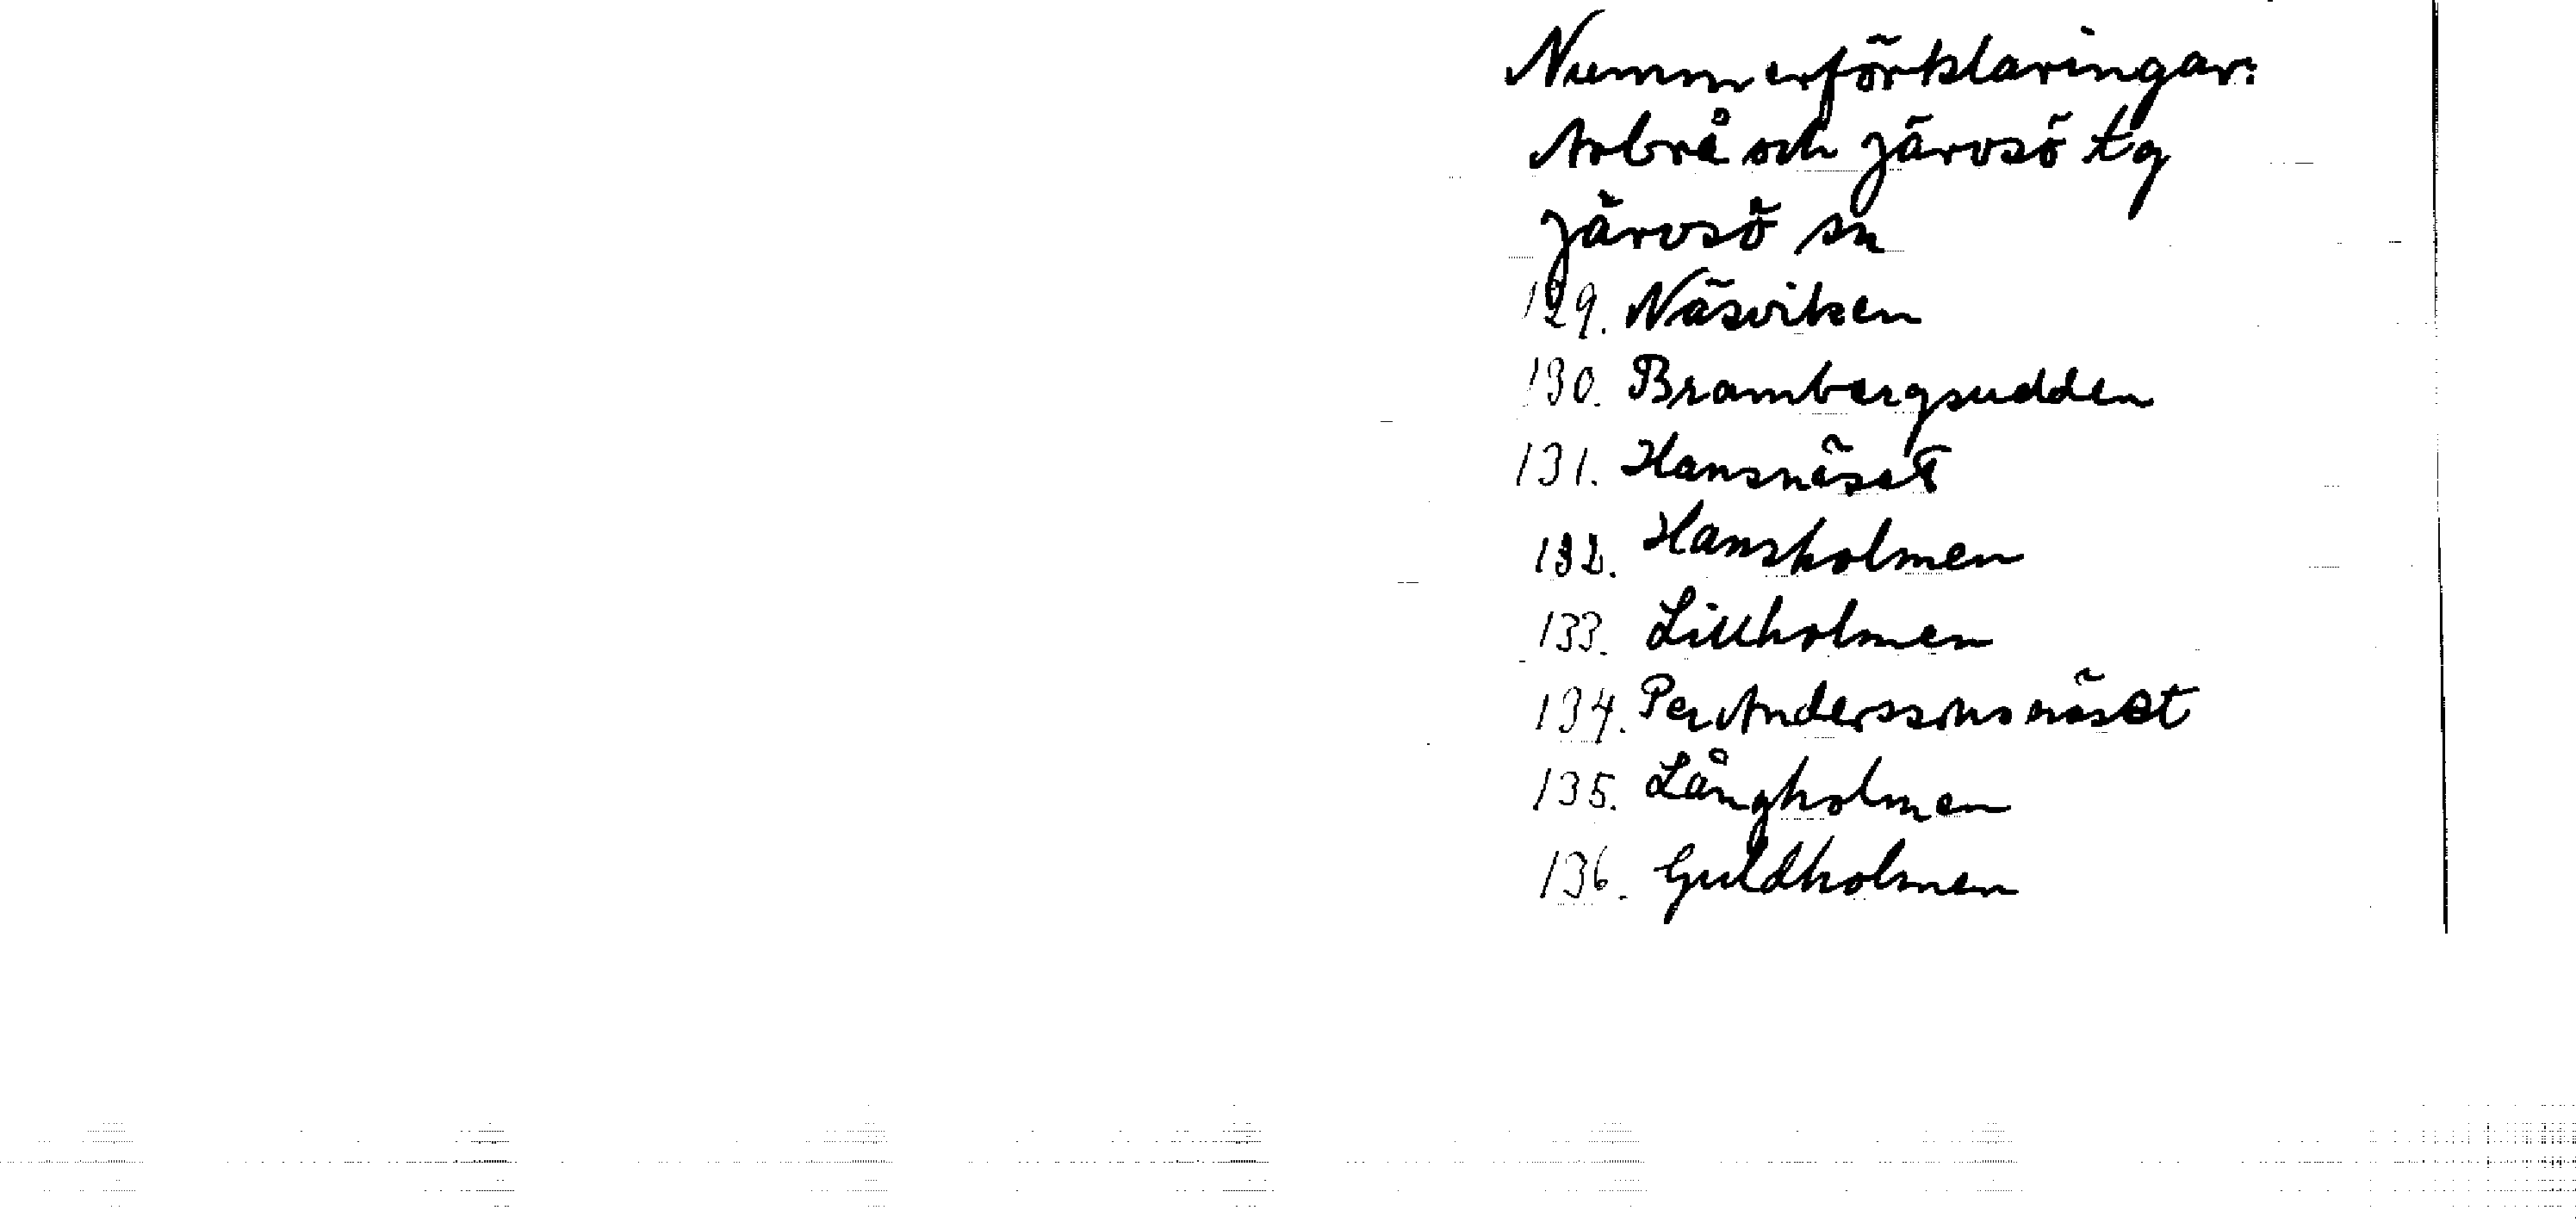 Nummerförklaringar:
Arbrå och Järvsö tg
Järvsö sn
129. Näsviken
130. Brambergsudden
131. Hansnäset
132. Hansholmen
133. Lillholmen
134. Per Anderssonsnäset
135. Långholmen
136. Guldholmen